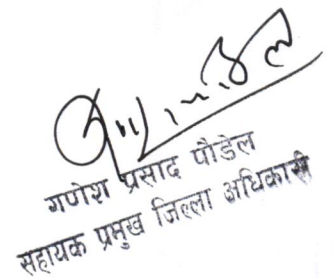 गणेश प्रसाद पौडेल
सहायक प्रमुख जिल्ला अधिकारी